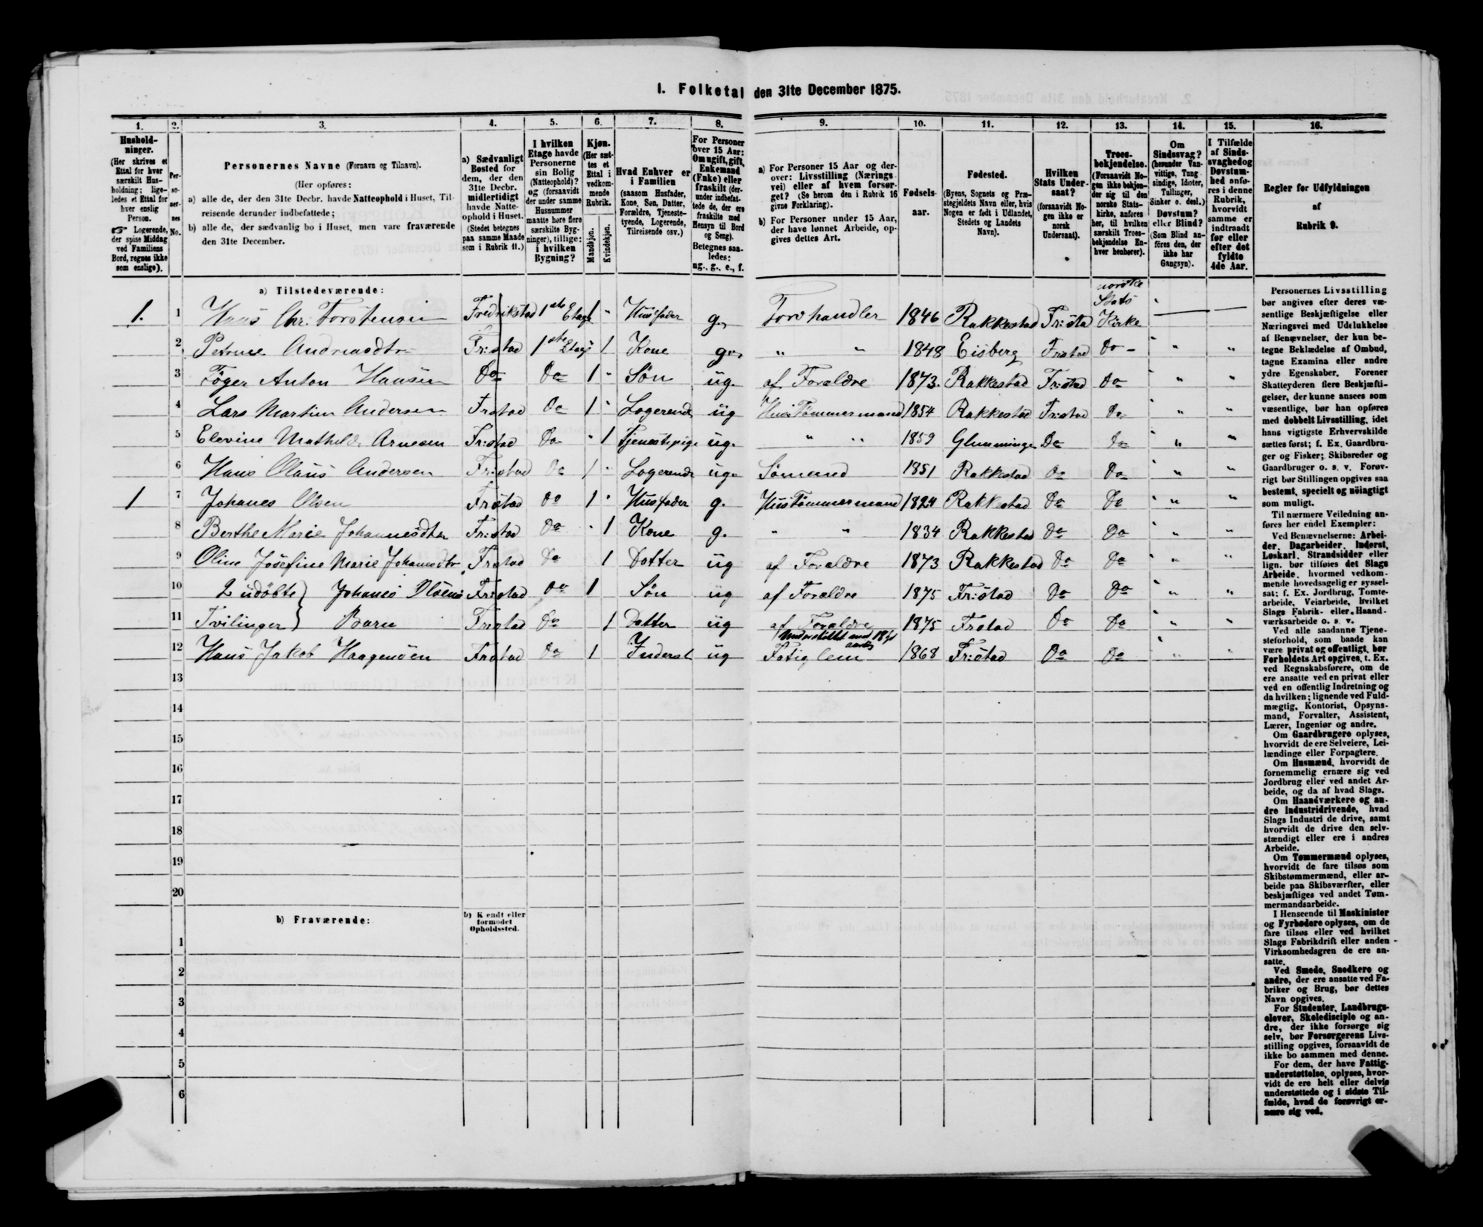 1. Folketal den 31te December 1875.
1. 2. 3. 4. 5. 6. 7. 8. 9. 10. 11. 12. 13. 14. 15. 16.
Hushold-
ninger.
(Her skrives et
Ettal for hver
særskilt Hus-
holdning; lige-
ledes et Ettal for
hver enslig
Person.
☞ Logerende,
der spise Middag
ved Familiens
Bord, regnes ikke
som enslige).
Per-
so-
ner-
nes
No.
Personernes Navne (Fornavn og Tilnavn).
(Her opføres:
a) alle de, der den 31te Decbr. havde Natteophold i Huset, Til-
reisende derunder indbefattede;
b) alle de, der sædvanlig bo i Huset, men vare fraværende
den 31te December.
a) Sædvanligt
Bosted for
dem, der den
31te Decbr.
midlertidigt
havde Natte-
ophold i Huset.
(Stedet betegnes
paa samme Maade
som i Rubrik 11.)
I hvilken
Etage havde
Personerne
sin Bolig
(Natteophold)?
og (forsaavidt
der under samme
Husnummer
maatte høre flere
særskilte Byg-
ninger), tillige:
i hvilken
Bygning?
Kjøn.
(Her sæt-
tes et
Ettal i
vedkom-
mende
Rubrik.
Mandkjøn.
Kvindekjøn.
Hvad Enhver er
i Familien
(saasom Husfader,
Kone, Søn, Datter,
Forældre, Tjeneste-
tyende, Logerende,
Tilreisende osv.)
For Personer
over 15 Aar:
Om ugift, gift,
Enkemand
(Enke) eller
fraskilt (der-
under indbefat-
tede de, der ere
fraskilte med
Hensyn til Bord
og Seng).
Betegnes saa-
ledes:
ug., g., e., f.
a) For Personer 15 Aar og der-
over: Livsstilling (Nærings
vei) eller af hvem forsør-
get? (Se herom den i Rubrik 16
givne Forklaring).
b) For Personer under 15 Aar,
der have lønnet Arbeide, op-
gives dettes Art.
Fødsels-
aar.
Fødested.
(Byens, Sognets og Præ-
stegjeldets Navn eller, hvis
Nogen er født i Udlandet,
Stedets og Landets
Navn).
Hvilken
Stats Under-
saat?
(forsaavidt No-
gen ikke er
norsk
Undersaat).
Troes-
bekjendelse.
(Forsaavidt No-
gen ikke bekjen-
der sig til den
norske Stats-
kirke, anføres
her, til hvilken
særskilt Troes-
bekjendelse En-
hver henhører).
Om
Sindssvag?
(herunder Van-
vittige, Tung-
sindige, Idioter,
Tullinger,
Sinker o. desl.)
Døvstum?
eller Blind?
(Som Blind an-
føres den, der
ikke har
Gangsyn).
I Tilfælde
af Sinds-
svaghed og
Døvstum-
hed anfø-
res i denne
Rubrik,
hvorvidt
samme er
indtraadt
før eller
efter det
fyldte
4de Aar.
Regler for Udfyldningen
af
Rubrik 9.
a) Tilstedeværende:
1. 1 Hans Chr. Torstensen Fredrikstad 1ste Etage 1 " Husfader g. Torvhandler 1846 Rakkestad Fr:sta norske Stats Kirke "
2 Petrine Andreasdtr Fr:stad 1ste Etage 1 Kone g. " " 1848 Eisberg Frstad Do " "
3 Føger Anton Hansen Do Do 1 " Søn ug. af Forældre 1873 Rakkestad Frstad Do " "
4 Lars Martin Andersen Frstad Do 1 " Logerend ug Hus Tømmermand 1854 Rakkestad Frstad Do " "
5 Elevine Mathilde Arnesen Frstad Do " 1 Tjenestepige ug. " " 1859 Glemminge Do Do " "
6 Hans Olaus Andersen Frstad Do 1 " Logerende ug. Sømand 1851 Rakkestad Do Do " "
1 7 Johanes Olsen Frstad Do 1 " Husfader g. Hus Tømmermand 1824 Rakkestad Do Do " "
8 Berthe Marie Johannesdtr Frstad Do " 1 Kone g. " " 1834 Rakkestad Do Do " "
9 Oline Josefine Marie Johansdtr. Frstad Do 1 Dotter ug af Forældre 1873 Rakkestad Do Do " "
10 2 udøbte } Johanes Olsens Frstad Do 1 Søn ug af Forældre 1875 Fr:stad Do Do " "
11 Tvilinger } Barn Frstad Do 1 Datter ug af Forældre 1875 Frstad Do Do " "
12 Hans Jakob Haagensen Frstad Do 1 Inderst ug Fatiglem Understøttet med 1868 Fr:stad Do Do " "
13
14
15
16
17
18
19
20
b) Fraværende:
b) Kjendt eller
formodet
Opholdssted.
1
2
3
4
5
6
Personernes Livsstilling
bør angives efter deres væ-
sentlige Beskjæftigelse eller
Næringsvei med Udelukkelse
af Benævnelser, der kun be-
tegne Beklædelse af Ombud,
tagne Examina eller andre
ydre Egenskaber. Forener
Skatteyderen flere Beskjæfti-
gelser, der kunne ansees som
væsentlige, bør han opføres
med dobbelt Livsstilling, idet
hans vigtigste Erhvervskilde
sættes først; f. Ex. Gaardbru-
ger og Fisker; Skibsreder og
Gaardbruger o. s. v. Forøv-
rigt bør Stillingen opgives saa
bestemt, specielt og nøiagtigt
som muligt.
Til nærmere Veiledning an-
føres her endel Exempler:
Ved Benævnelserne: Arbei-
der, Dagarbeider, Inderst,
Løskarl, Strandsidder eller
lign. bør tilføies det Slags
Arbeide, hvormed vedkom-
mende hovedsagelig er syssel-
sat; f. Ex. Jordbrug, Tomte-
arbeide, Veiarbeide, hvilket
Slags Fabrik- eller Haand-
værksarbeide o. s. v.
Ved alle saadanne Tjene-
steforhold, som baade kan
være privat og offentligt, bør
Forholdets Art opgives, t. Ex.
ved Regnskabsførere, om de
ere ansatte ved en privat eller
ved en offentlig Indretning og
da hvilken; lignende ved Fuld-
mægtig, Kontorist, Opsyns-
mand, Forvalter, Assistent,
Lærer, Ingeniør og andre.
Om Gaardbrugere oplyses,
hvorvidt de ere Selveiere, Lei-
lændinge eller Forpagtere.
Om Husmænd, hvorvidt de
fornemmelig ernære sig ved
Jordbrug eller ved andet Ar-
beide, og da af hvad Slags.
Om Haandværkere og an-
dre Industridrivende, hvad
Slags Industri de drive, samt
hvorvidt de drive den selv-
stændigt eller ere i andres
Arbeide.
Om Tømmermænd oplyses,
hvorvidt de fare tilsøs som
Skibstømmermænd, eller ar-
beide paa Skibsværfter, eller
beskjæftiges ved andet Tøm-
mermandsarbeide.
I Henseende til Maskinister
og Fyrbødere oplyses, om de
fare tilsøs eller ved hvilket
Slags Fabrikdrift eller anden
Virksomhedsgren de ere an-
satte.
Ved Smede, Snedkere og
andre, der ere ansatte ved Fa-
briker og Brug, bør dettes
Navn opgives.
For Studenter, Landbrugs-
elever, Skoledisciple og an-
dre, der ikke forsørge sig
selv, bør Forsørgerens Livs-
stilling opgives, forsaavidt de
ikke bo sammen med denne.
For dem, der have Fattig-
understøttelse, oplyses, hvor-
vidt de ere helt eller delvis
understøttede og i sidste Til-
fælde, hvad de forøvrigt er-
nære sig ved.